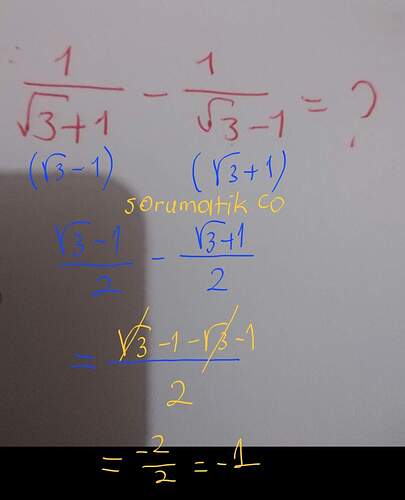 1/(√3+1) - 1/(√3-1) = ?
(√3-1) (√3+1)
sorumatik co
(√3-1)/2 - (√3+1)/2
= (√3-1-√3-1)/2
= -2/2 = -1